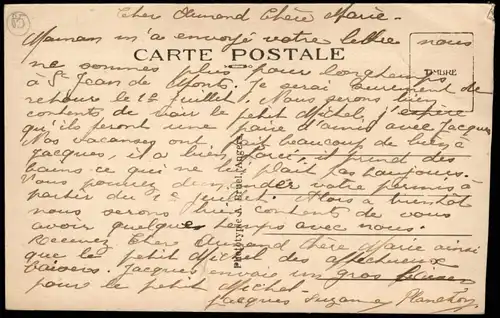 Cher Armand Chère Marie -
Maman m'a envoyé votre lettre nous
CARTE POSTALE
TIMBRE
ne sommes plus pour longtemps
à St Jean de Monts. Je serai surement de
retour le 1er Juillet. Nous serons bien
contents de voir le petit Michel, j'espère
qu'ils feront une paire d'amis avec Jacques
Nos vacances ont fait beaucoup de bien à
Jacques, il a bien forci. il prend des
bains ce qui ne le plait pas toujours.
Vous pourrez demander votre permis à
partir du 1er Juillet. Alors à bientôt
nous serons bien contents de vous
avoir quelque temps avec nous.
Recevez Cher Armand Chère Marie ainsi
que le petit Michel des affectueux
baisers. Jacques envoie un gros baiser
pour le petit Michel.
Jacques Suzanne
Phototypie A. Bruel, Angers